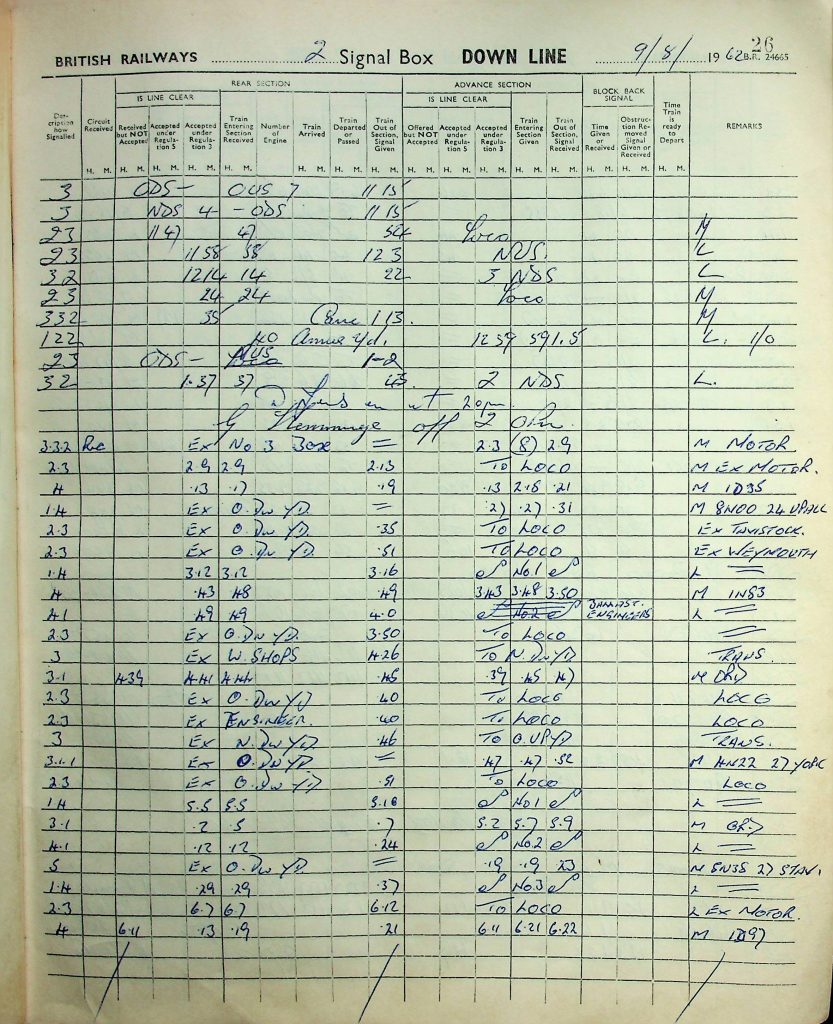 26
BRITISH RAILWAYS 2 Signal Box DOWN LINE 9/8/ 1962 B.R. 24665
REAR SECTION ADVANCE SECTION BLOCK BACK SIGNAL
IS LINE CLEAR IS LINE CLEAR
Description how Signalled Circuit Received Received but NOT Accepted Accepted under Regulation 5 Accepted under Regulation 3 Train Entering Section Received Number of Engine Train Arrived Train Departed or Passed Train Out of Section, Signal Given Offered but NOT Accepted Accepted under Regulation 5 Accepted under Regulation 3 Train Entering Section Given Train Out of Section, Signal Received Time Given or Received Obstruction Removed Signal Given or Received Time Train is ready to Depart REMARKS
H. M. H. M. H. M. H. M. H. M. H. M. H. M. H. M. H. M. H. M. H. M. H. M. H. M. H. M. H. M. H. M.
3 ODS- OUS 7 11 15
3 NDS 4 - ODS 11 15
23 11 47 47 54 Loco M
23 11 58 58 12 3 NUS L
32 12 14 14 22 3 NDS L
23 24 24 Loco M
332 35 Canc 1 13 M
122 40 12 59 59 1.5 L. 1/0
23 ODS- NUS 1-2
32 1.37 37 45 2 NDS L.
off 2
3.3.2 Rec Ex No 3 Box = 2.3 (8) 2.9 M MOTOR
2.3 2.9 2.9 2.13 TO LOCO M EX MOTOR.
4 .13 .17 .19 .13 2.18 .21 M 1D35
1.4 Ex O. Dn YD = .27 .27 .31 M 8N00 24 UP ALL
2.3 Ex O. Dn YD .35 TO LOCO EX TAVISTOCK.
2.3 Ex O. Dn YD .51 TO LOCO EX WEYMOUTH
1.4 3.12 3.12 3.16 No 1 L =
4 .43 48 .49 3.43 3.48 3.50 M 1N53
41 .49 49 4.0 No.2 ENGINEERS L =
2.3 Ex O. Dn YD. 3.50 TO LOCO =
3 Ex W. SHOPS 4.26 TO N. Dn YD TRANS.
3.1 4.39 4.41 4.44 .45 .39 .45 .47 M
2.3 Ex O. Dn YD 40 TO LOCO LOCO
2.3 Ex ENGINEER. .40 TO LOCO LOCO
3 Ex N. Dn YD .46 TO O. UP YD TRANS.
3.1.1 Ex O. Dn YD = .47 .47 .52 M 4N22 27 YORK
23 Ex O. Dn YD .51 TO LOCO LOCO
1.4 5.5 5.5 5.10 No 1 L =
3.1 .2 .5 .7 5.2 5.7 5.9 M
4.1 .12 .12 .24 No.2 L =
5 Ex O. Dn YD = .19 .19 23 M 5N35 27
1.4 .29 .29 .37 No.3 L =
2.3 6.7 6.7 6.12 TO LOCO L EX MOTOR.
4 6.11 .13 .19 .21 6.11 6.21 6.22 M 1D97